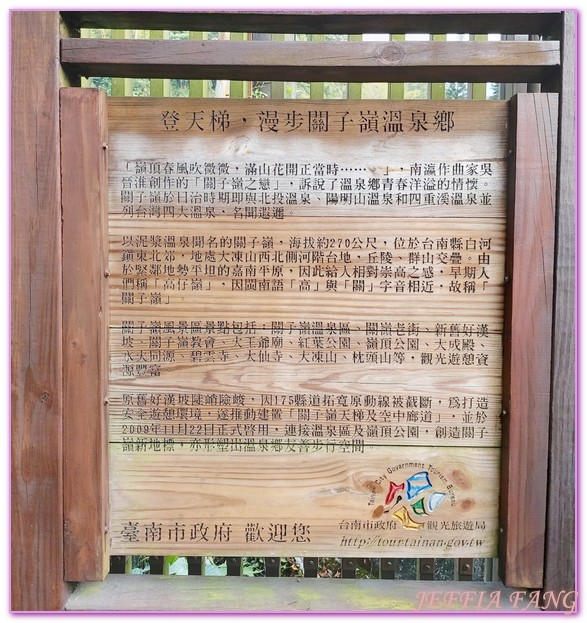 登天梯,漫步關子嶺溫泉鄉
「嶺頂春風吹微微,滿山花開正當時……。」,南瀛作曲家吳
晉淮創作的「關子嶺之戀」,訴說了溫泉鄉青春洋溢的情懷。
關子嶺於日治時期即與北投溫泉、陽明山溫泉和四重溪溫泉並
列台灣四大溫泉、名聞遐邇。
以泥漿溫泉聞名的關子嶺,海拔約270公尺,位於台南縣白河
鎮東北郊,地處大凍山西北側河階台地,丘陵、群山交疊。由
於緊鄰地勢平坦的嘉南平原,因此給人相對崇高之感,早期人
們稱「高仔嶺」,因閩南語「高」與「關」字音相近,故稱「
關子嶺」
關子嶺風景區景點包括:關子嶺溫泉區、關嶺老街、新舊好漢
坡、關子嶺教會、火王爺廟、紅葉公園、嶺頂公園、大成殿、
水火同源、碧雲寺、大仙寺、大凍山、枕頭山等,觀光遊憩資
源豐富
原舊好漢坡陡峭險峻,因175縣道拓寬原動線被截斷,為打造
安全遊憩環境,遂推動建置「關子嶺天梯及空中廊道」,並於
2009年11月22日正式啓用,連接溫泉區及嶺頂公園,創造關子
嶺新地標,亦形塑出溫泉鄉友善步行空間。
Tainan City Government Tourism Bureau
臺南市政府 歡迎您
台南市政府 觀光旅遊局
http://tourtainan.gov.tw
JEFFIA FANG